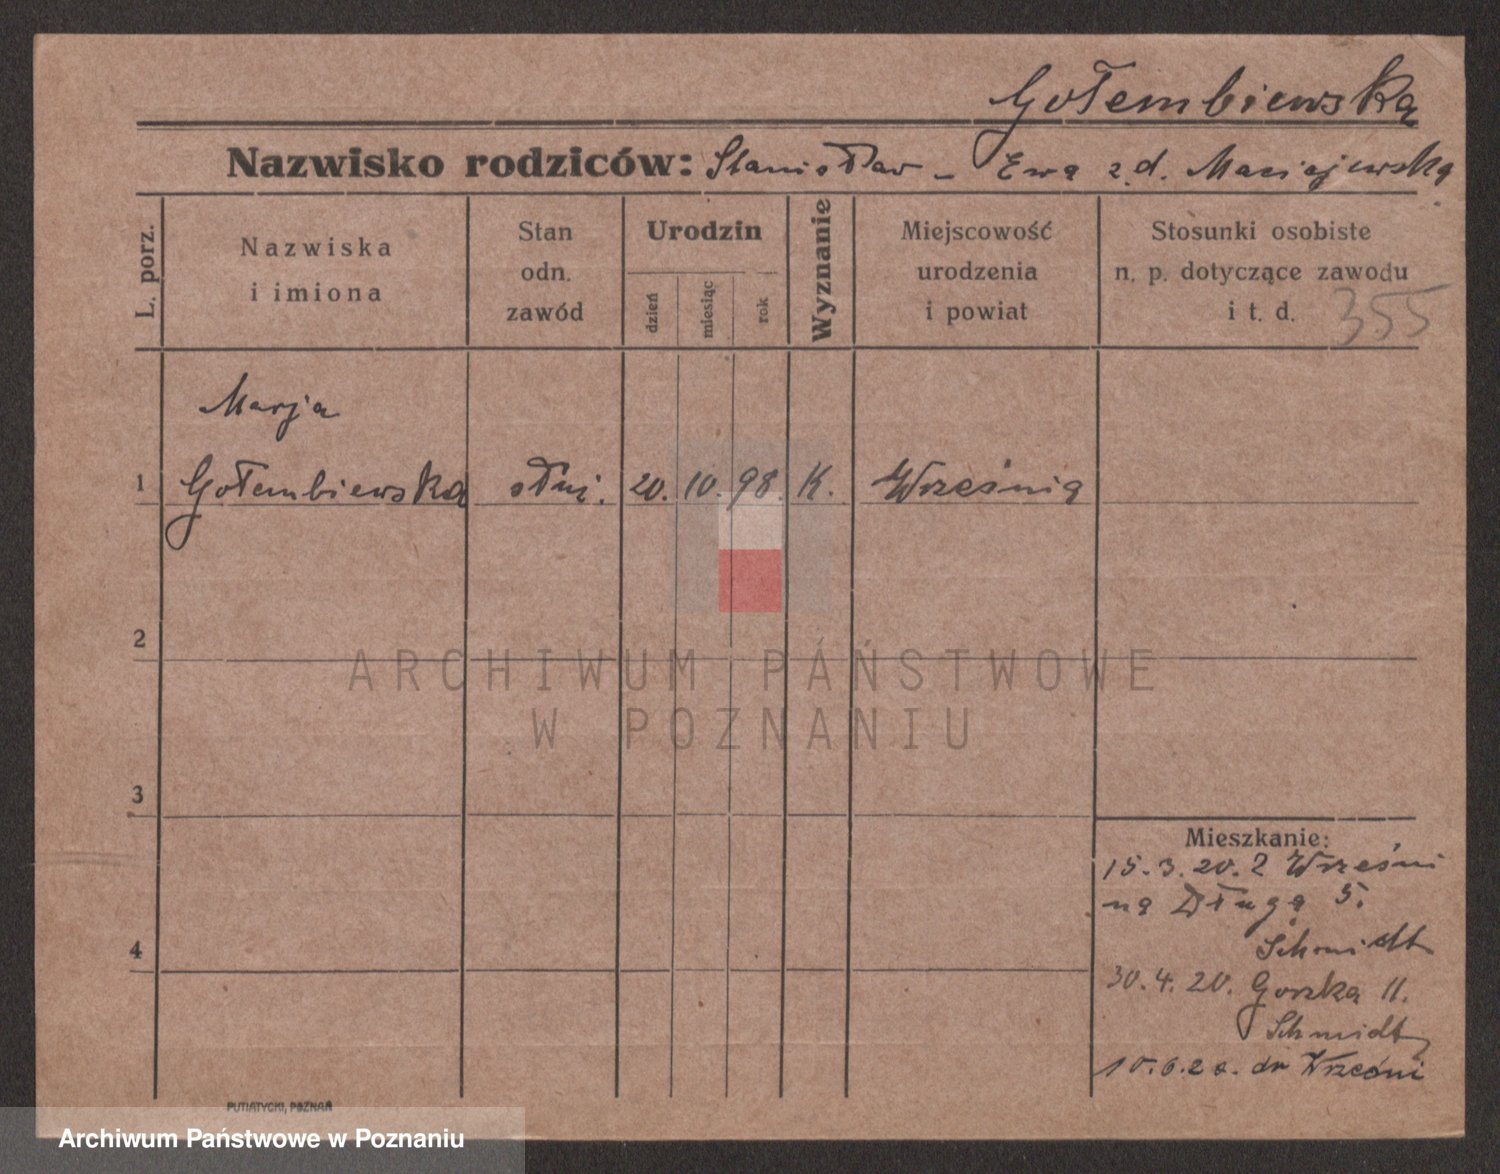 Gołembiewska
Nazwisko rodziców: Stanisław - Ewa z d. Maciejewska
L. porz.
Nazwiska
i imiona
Stan
odn.
zawód
Urodzin
dzień
miesiąc
rok
Wyznanie
Miejscowość
urodzenia
i powiat
Stosunki osobiste
n. p. dotyczące zawodu
i t. d.
355
Marja
1 Gołembiewska służ. 20. 10. 98. K. Września
2
3
4
Mieszkanie:
15.3.20. z Wrześni
na Długą 5.
Schmidt
30.4.20. Gorzka 11.
Schmidt
10.6.20. do Wrześni
PUTIATYCKI, POZNAŃ
ARCHIWUM PAŃSTWOWE
W POZNANIU
Archiwum Państwowe w Poznaniu